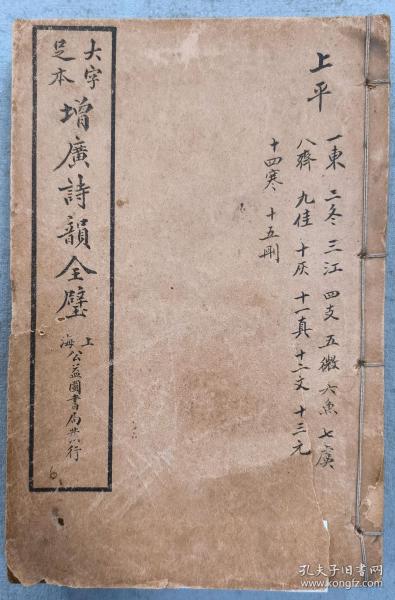 上平
一東 二冬 三江 四支 五微 六魚 七虞
八齊 九佳 十灰 十一真 十二文 十三元
十四寒 十五刪
大字
足本
增廣詩韻全璧
上海公益圖書局行
孔夫子旧书网
kongfz.com